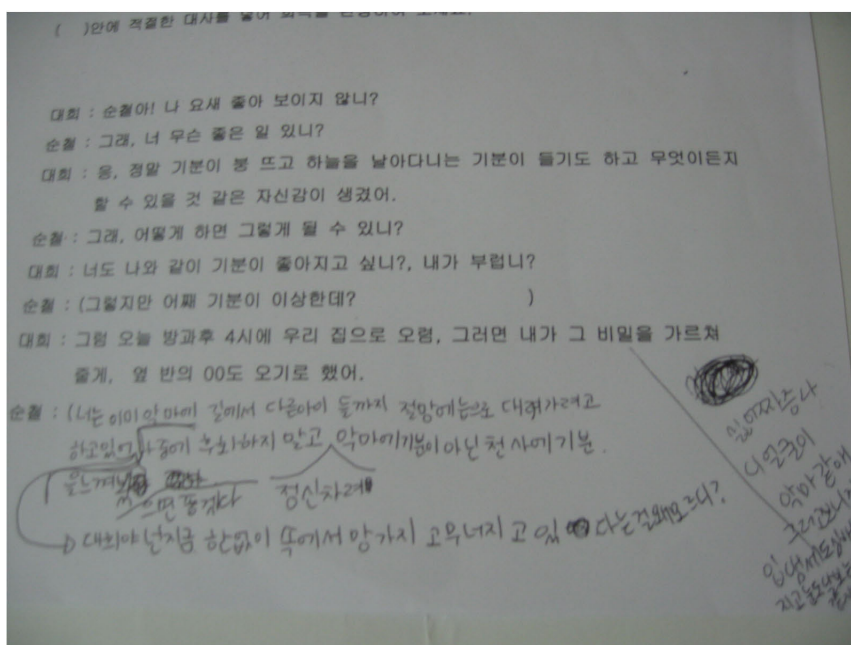 ( )안에 적절한 대사를 넣어
대희 : 순철아! 나 요새 좋아 보이지 않니?
순철 : 그래, 너 무슨 좋은 일 있니?
대희 : 응, 정말 기분이 붕 뜨고 하늘을 날아다니는 기분이 들기도 하고 무엇이든지
할 수 있을 것 같은 자신감이 생겼어.
순철 : 그래, 어떻게 하면 그렇게 될 수 있니?
대희 : 너도 나와 같이 기분이 좋아지고 싶니?, 내가 부럽니?
순철 : (그렇지만 어째 기분이 이상한데? )
대희 : 그럼 오늘 방과후 4시에 우리 집으로 오렴, 그러면 내가 그 비밀을 가르쳐
줄게, 옆 반의 00도 오기로 했어.
순철 : (너는 이미 악마에 길에서 다른아이 들까지 절망에늪으로 대려가려고
하고있어 나중에 후회하지 말고 악마에기분이 아닌 천사에 기분
을느껴 으면 좋겠다 정신차려
대희야 넌지금 한없이 뚝에서 망가지고무너지고 있다는걸왜모르니?
싫어짜증나
니얼굴이
악마같애